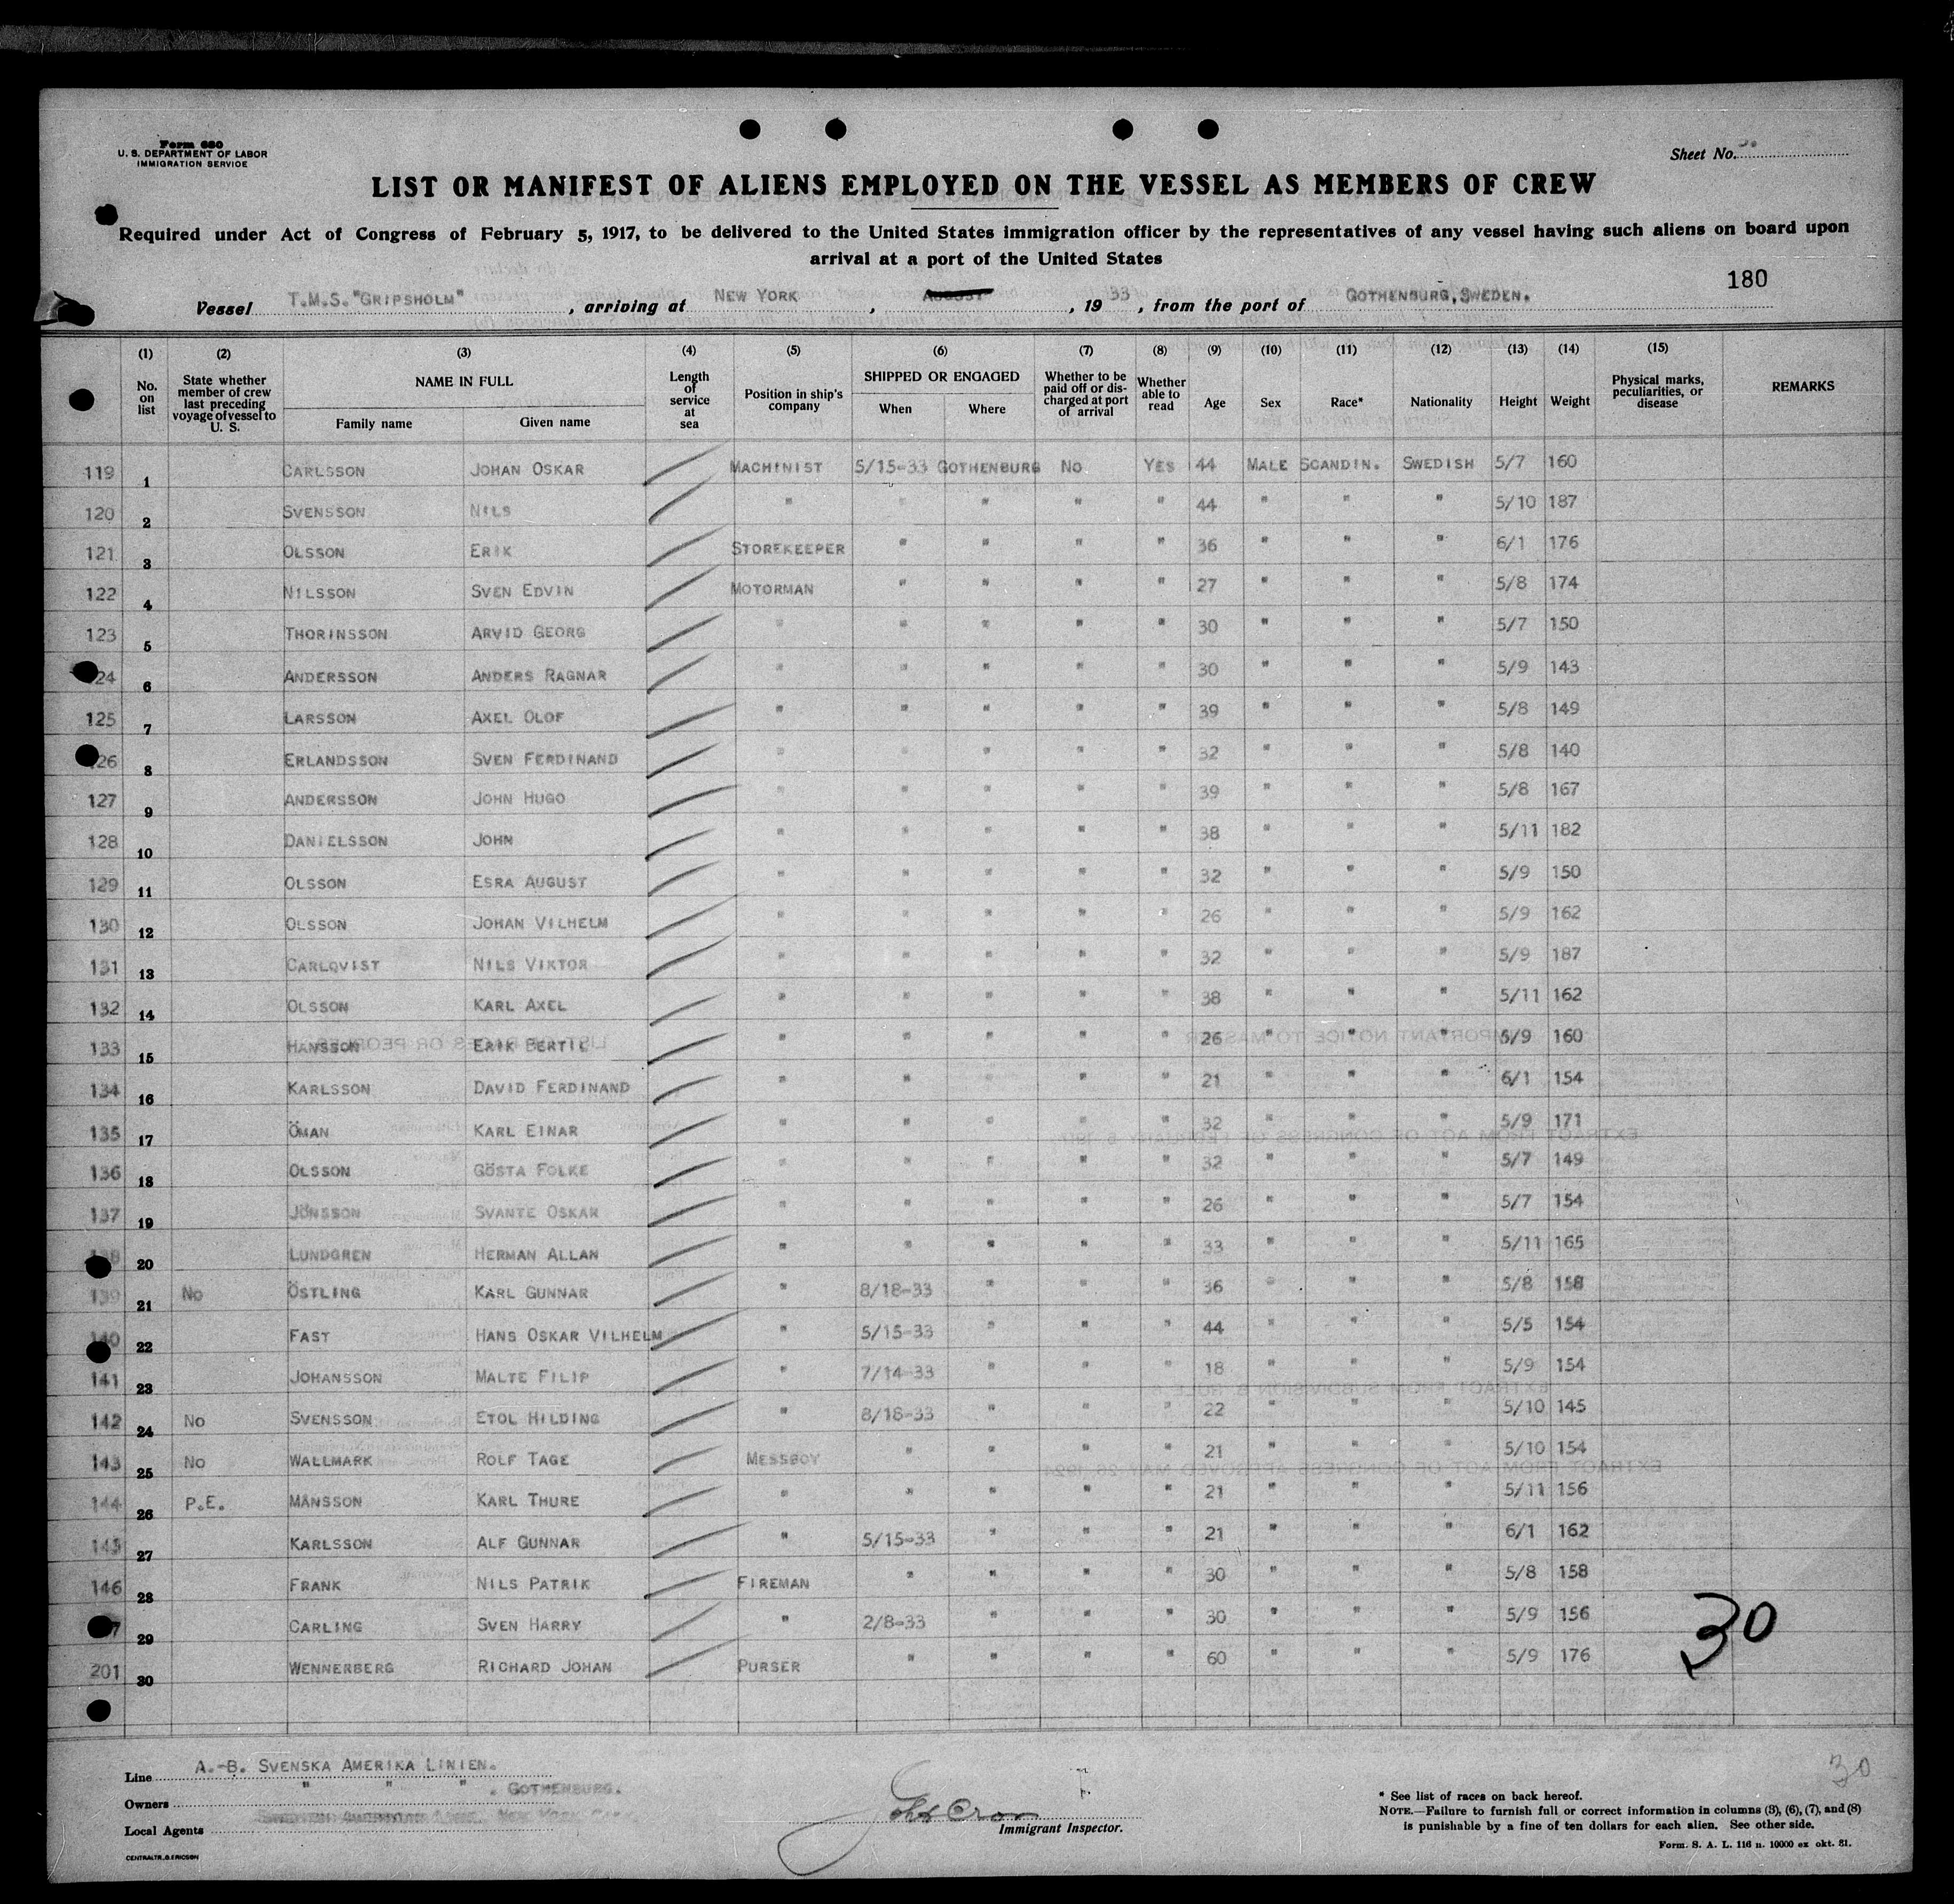 Form 680
U. S. DEPARTMENT OF LABOR
IMMIGRATION SERVICE
Sheet No.
LIST OR MANIFEST OF ALIENS EMPLOYED ON THE VESSEL AS MEMBERS OF CREW
Required under Act of Congress of February 5, 1917, to be delivered to the United States immigration officer by the representatives of any vessel having such aliens on board upon
arrival at a port of the United States
180
Vessel T.M.S. "GRIPSHOLM", arriving at NEW YORK, AUGUST, 19 33, from the port of GOTHENBURG, SWEDEN.
(1) (2) (3) (4) (5) (6) (7) (8) (9) (10) (11) (12) (13) (14) (15)
No. on list | State whether member of crew last preceding voyage of vessel to U. S. | NAME IN FULL | Family name | Given name | Length of service at sea | Position in ship's company | SHIPPED OR ENGAGED | When | Where | Whether to be paid off or discharged at port of arrival | Whether able to read | Age | Sex | Race* | Nationality | Height | Weight | Physical marks, peculiarities, or disease | REMARKS
119 1 CARLSSON JOHAN OSKAR MACHINIST 5/15-33 GOTHENBURG NO YES 44 MALE SCANDIN. SWEDISH 5/7 160
120 2 SVENSSON NILS " " " " " 44 " " " 5/10 187
121 3 OLSSON ERIK STOREKEEPER " " " " 36 " " " 6/1 176
122 4 NILSSON SVEN EDVIN MOTORMAN " " " " 27 " " " 5/8 174
123 5 THORINSSON ARVID GEORG " " " " " 30 " " " 5/7 150
124 6 ANDERSSON ANDERS RAGNAR " " " " " 30 " " " 5/9 143
125 7 LARSSON AXEL OLOF " " " " " 39 " " " 5/8 149
126 8 ERLANDSSON SVEN FERDINAND " " " " " 32 " " " 5/8 140
127 9 ANDERSSON JOHN HUGO " " " " " 39 " " " 5/8 167
128 10 DANIELSSON JOHN " " " " " 38 " " " 5/11 182
129 11 OLSSON ESRA AUGUST " " " " " 32 " " " 5/9 150
130 12 OLSSON JOHAN VILHELM " " " " " 26 " " " 5/9 162
131 13 CARLQVIST NILS VIKTOR " " " " " 32 " " " 5/9 187
132 14 OLSSON KARL AXEL " " " " " 38 " " " 5/11 162
133 15 HANSSON ERIK BERTIL " " " " " 26 " " " 5/9 160
134 16 KARLSSON DAVID FERDINAND " " " " " 21 " " " 6/1 154
135 17 ÖMAN KARL EINAR " " " " " 32 " " " 5/9 171
136 18 OLSSON GÖSTA FOLKE " " " " " 32 " " " 5/7 149
137 19 JÖNSSON SVANTE OSKAR " " " " " 26 " " " 5/7 154
138 20 LUNDGREN HERMAN ALLAN " " " " " 33 " " " 5/11 165
139 21 NO ÖSTLING KARL GUNNAR " 8/18-33 " " " 36 " " " 5/8 158
140 22 FAST HANS OSKAR VILHELM " 5/15-33 " " " 44 " " " 5/5 154
141 23 JOHANSSON MALTE FILIP " 7/14-33 " " " 18 " " " 5/9 154
142 24 NO SVENSSON ETOL HILDING " 8/18-33 " " " 22 " " " 5/10 145
143 25 NO WALLMARK ROLF TAGE MESSBOY " " " " 21 " " " 5/10 154
144 26 P.E. MÅNSSON KARL THURE " " " " " 21 " " " 5/11 156
145 27 KARLSSON ALF GUNNAR " 5/15-33 " " " 21 " " " 6/1 162
146 28 FRANK NILS PATRIK FIREMAN " " " " 30 " " " 5/8 158
7 29 CARLING SVEN HARRY " 2/8-33 " " " 30 " " " 5/9 156
201 30 WENNERBERG RICHARD JOHAN PURSER " " " " 60 " " " 5/9 176
30
Line A.-B. SVENSKA AMERIKA LINIEN.
Owners " " " . GOTHENBURG.
Local Agents
30
Immigrant Inspector.
* See list of races on back hereof.
NOTE.—Failure to furnish full or correct information in columns (3), (6), (7), and (8)
is punishable by a fine of ten dollars for each alien. See other side.
Form. S. A. L. 116 n. 10000 ex okt. 31.
CENTRALTR.,G.ERICSON